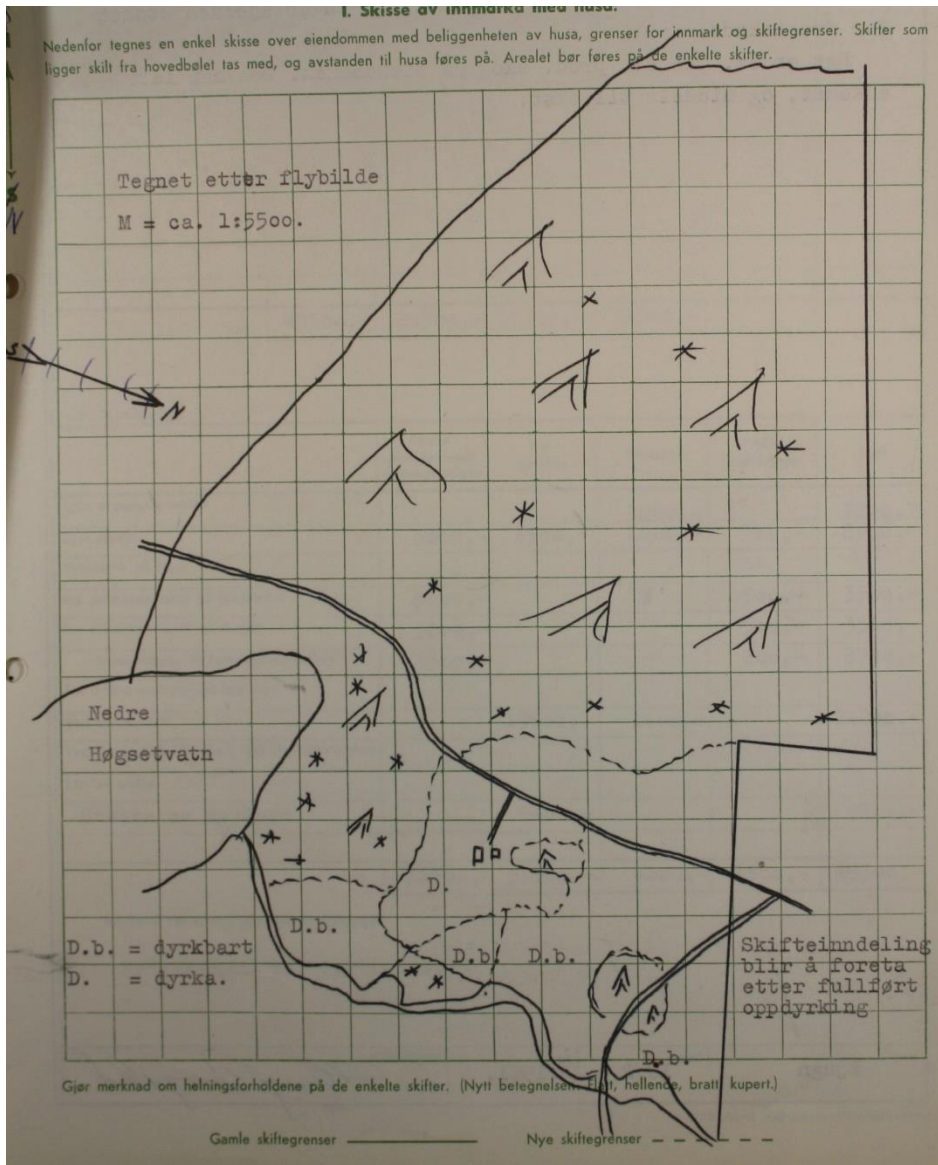 I. Skisse av innmarka med husa.
Nedenfor tegnes en enkel skisse over eiendommen med beliggenheten av husa, grenser for innmark og skiftegrenser. Skifter som
ligger skilt fra hovedbølet tas med, og avstanden til husa føres på. Arealet bør føres på de enkelte skifter.
Tegnet etter flybilde
M = ca. 1:5500.
N
S
N
Nedre
Høgsetvatn
D.
D.b.
D.b.
D.b.
D.b. = dyrkbart
D. = dyrka.
Skifteinndeling
blir å foreta
etter fullført
oppdyrking
D.b.
Gjør merknad om helningsforholdene på de enkelte skifter. (Nytt betegnelsen: Flatt, hellende, bratt, kupert.)
Gamle skiftegrenser
Nye skiftegrenser